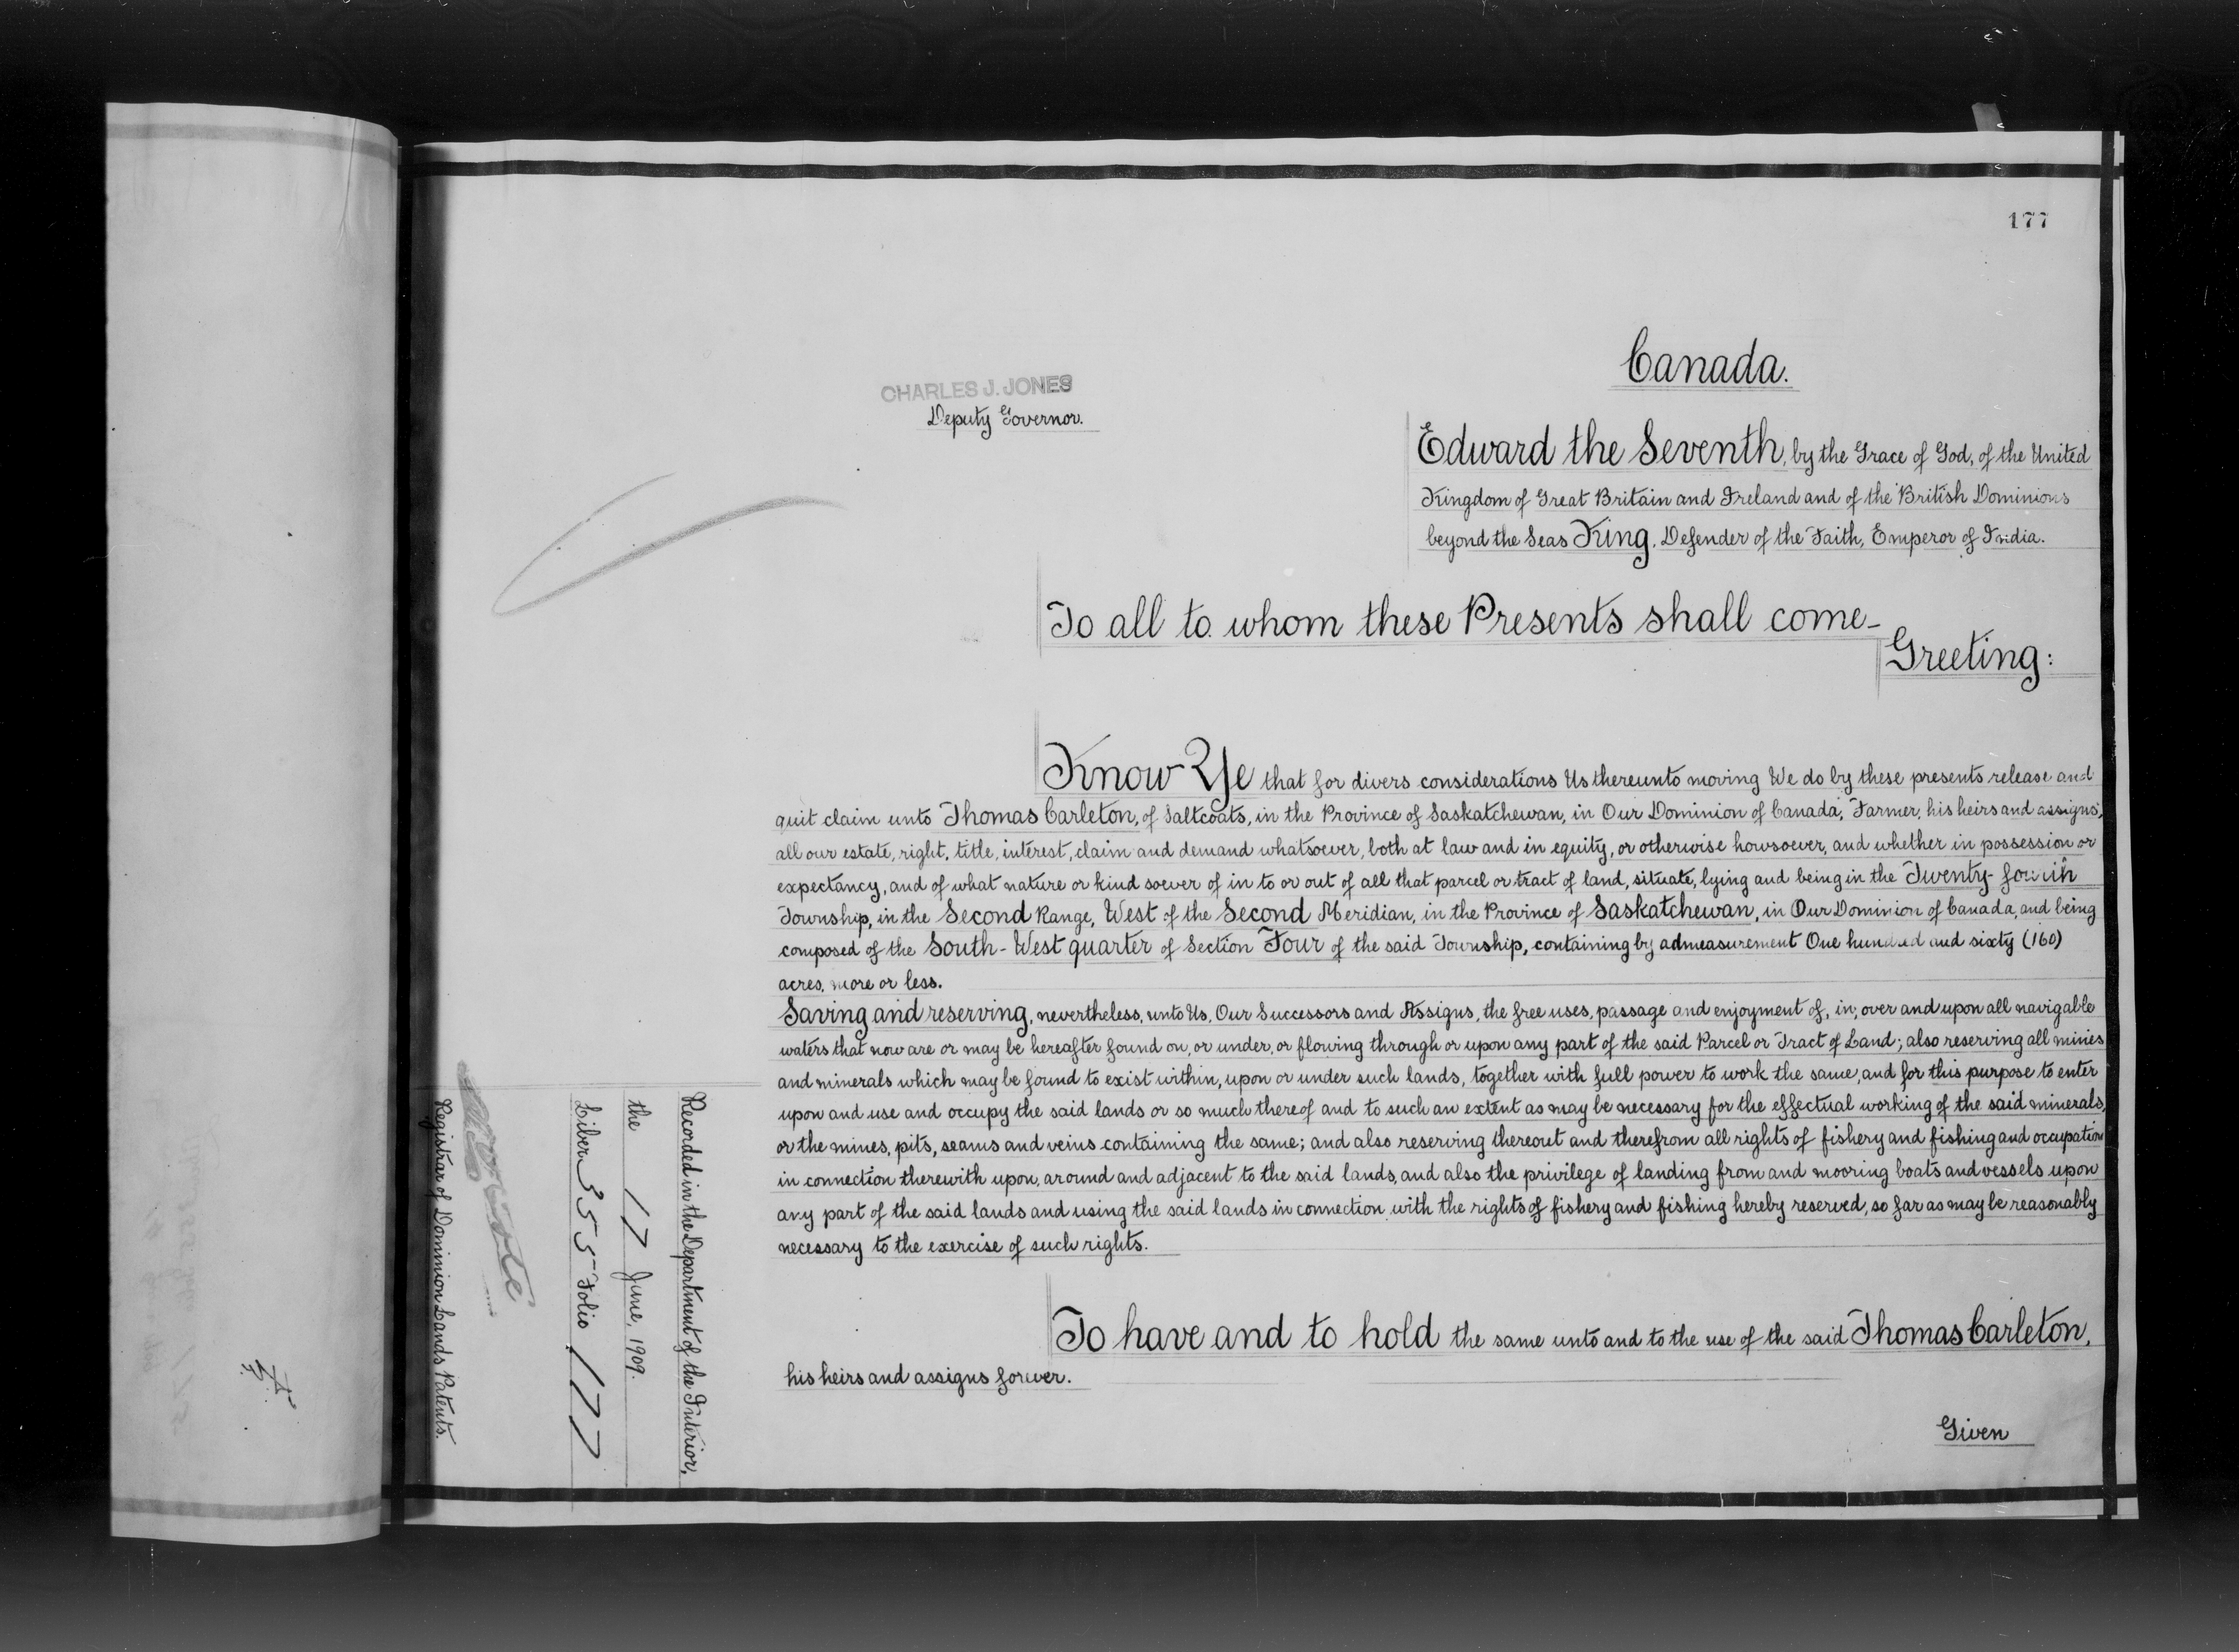 177
Canada.
CHARLES J. JONES
Deputy Governor.
Edward the Seventh, by the Grace of God, of the United
Kingdom of Great Britain and Ireland and of the British Dominions
beyond the Seas King, Defender of the Faith, Emperor of India.
To all to whom these Presents shall come—
Greeting:
Know Ye that for divers considerations Us thereunto moving We do by these presents release and
quit claim unto Thomas Carleton, of Saltcoats, in the Province of Saskatchewan, in Our Dominion of Canada, Farmer, his heirs and assigns,
all our estate, right, title, interest, claim and demand whatsoever, both at law and in equity, or otherwise howsoever, and whether in possession or
expectancy, and of what nature or kind soever of in to or out of all that parcel or tract of land, situate, lying and being in the Twenty-fourth
Township, in the Second Range, West of the Second Meridian, in the Province of Saskatchewan, in Our Dominion of Canada, and being
composed of the South-West quarter of Section Four of the said Township, containing by admeasurement One hundred and sixty (160)
acres, more or less.
Saving and reserving, nevertheless, unto Us, Our Successors and Assigns, the free uses, passage and enjoyment of, in, over and upon all navigable
waters that now are or may be hereafter found on, or under, or flowing through or upon any part of the said Parcel or Tract of Land; also reserving all mines
and minerals which may be found to exist within, upon or under such lands, together with full power to work the same, and for this purpose to enter
upon and use and occupy the said lands or so much thereof and to such an extent as may be necessary for the effectual working of the said minerals,
or the mines, pits, seams and veins containing the same; and also reserving thereout and therefrom all rights of fishery and fishing and occupation
in connection therewith upon, around and adjacent to the said lands, and also the privilege of landing from and mooring boats and vessels upon
any part of the said lands and using the said lands in connection with the rights of fishery and fishing hereby reserved, so far as may be reasonably
necessary to the exercise of such rights.
To have and to hold the same unto and to the use of the said Thomas Carleton,
his heirs and assigns forever.
Given
Recorded in the Department of the Interior,
the 17 June, 1909.
Liber 355 Folio 177
Registrar of Dominion Lands Patents.